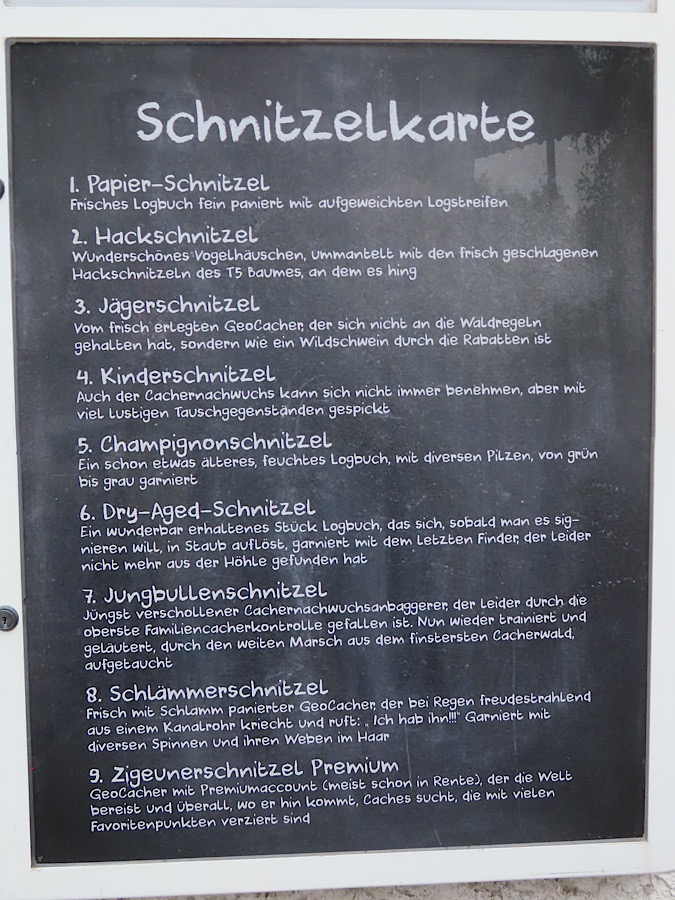 Schnitzelkarte
1. Papier-Schnitzel
Frisches Logbuch fein paniert mit aufgeweichten Logstreifen
2. Hackschnitzel
Wunderschönes Vogelhäuschen, ummantelt mit den frisch geschlagenen
Hackschnitzeln des T5 Baumes, an dem es hing
3. Jägerschnitzel
Vom frisch erlegten GeoCacher, der sich nicht an die Waldregeln
gehalten hat, sondern wie ein Wildschwein durch die Rabatten ist
4. Kinderschnitzel
Auch der Cachernachwuchs kann sich nicht immer benehmen, aber mit
viel lustigen Tauschgegenständen gespickt
5. Champignonschnitzel
Ein schon etwas älteres, feuchtes Logbuch, mit diversen Pilzen, von grün
bis grau garniert
6. Dry-Aged-Schnitzel
Ein wunderbar erhaltenes Stück Logbuch, das sich, sobald man es sig-
nieren will, in Staub auflöst, garniert mit dem letzten Finder, der leider
nicht mehr aus der Höhle gefunden hat
7. Jungbullenschnitzel
Jüngst verschollener Cachernachwuchsanbaggerer, der leider durch die
oberste Familiencacherkontrolle gefallen ist. Nun wieder trainiert und
geläutert, durch den weiten Marsch aus dem finstersten Cacherwald,
aufgetaucht
8. Schlämmerschnitzel
Frisch mit Schlamm panierter GeoCacher, der bei Regen freudestrahlend
aus einem Kanalrohr kriecht und ruft: „Ich hab ihn!!!" Garniert mit
diversen Spinnen und ihren Weben im Haar
9. Zigeunerschnitzel Premium
GeoCacher mit Premiumaccount (meist schon in Rente), der die Welt
bereist und überall, wo er hin kommt, Caches sucht, die mit vielen
Favoritenpunkten verziert sind